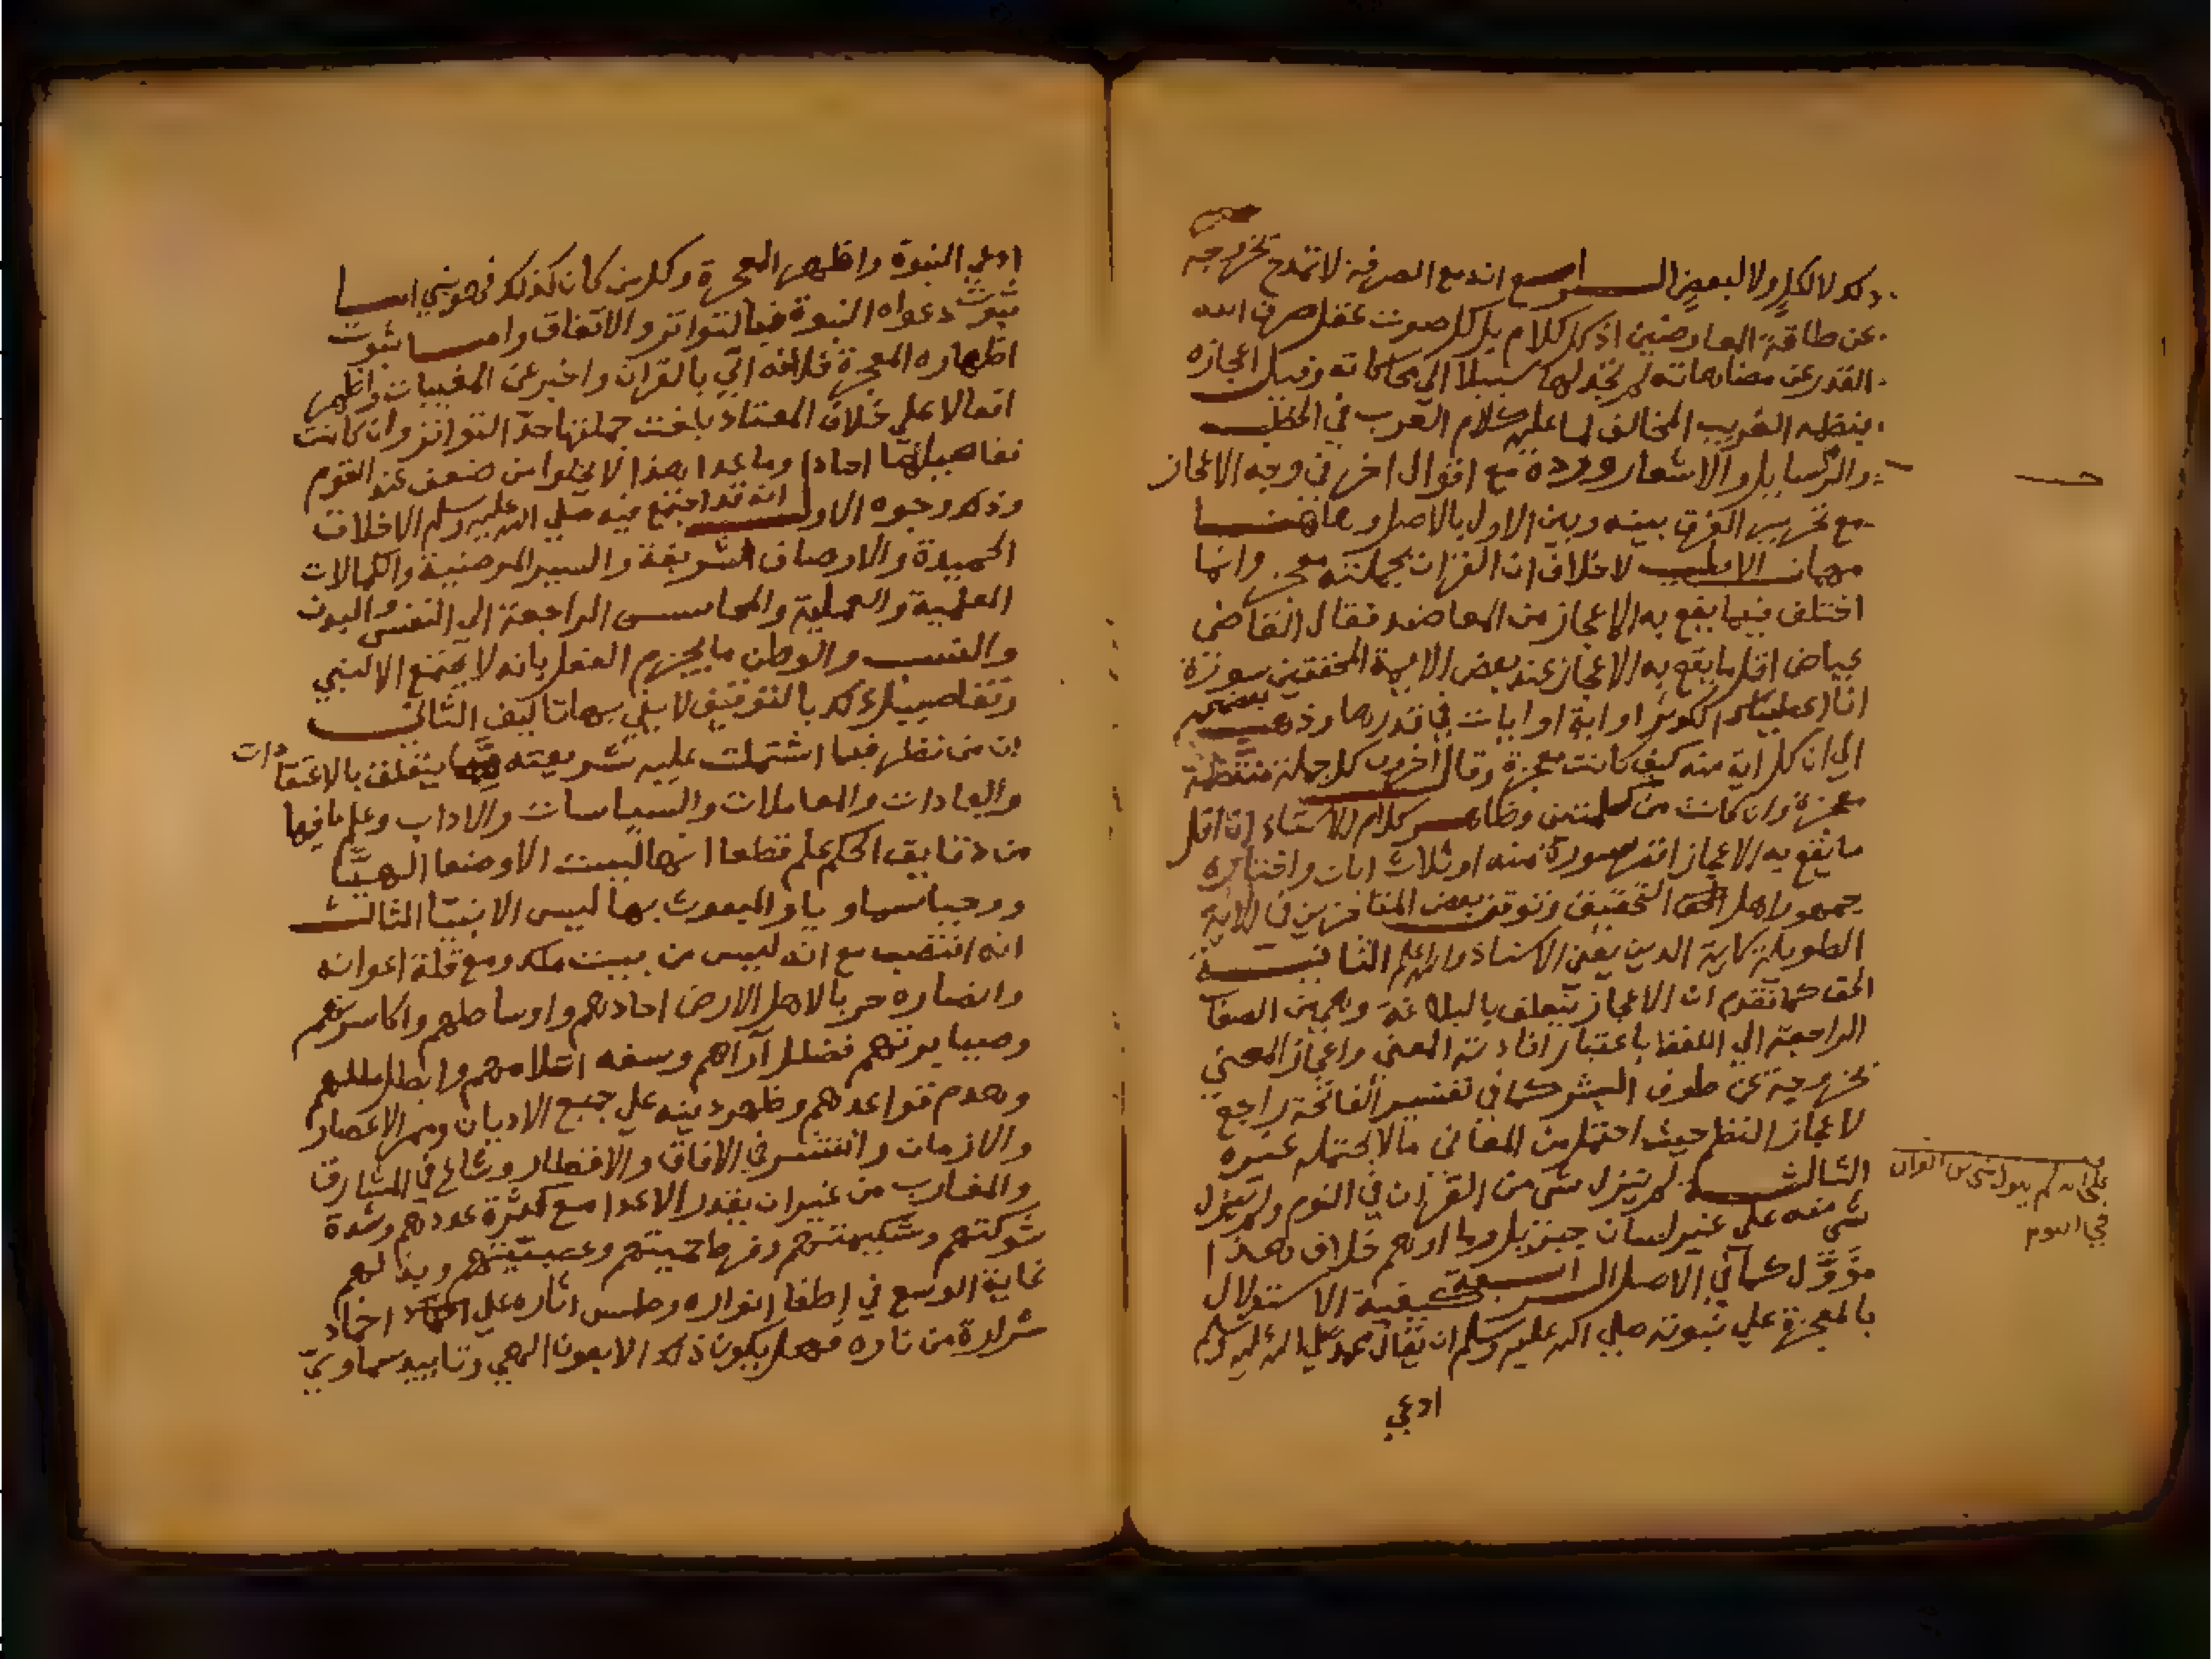 ذلك لا لكل ولا لبعض الرابع انه مع الصرفة لا تمدح بخروجه
عن طاقة المعارضين اذ كل كلام بل كل صوت عقل صرف الله
القدر عن مضاهاته لم تجد لها سبيلا الي محاكاته وقيل اعجازه
بنظمه الغريب المخالف لما عليه كلام العرب في الخطب
والرسايل والاشعار ورده مع اقوال اخر في وجه الاعجاز
مع تحرير الفرق بينه وبين الاول بالاصل وهاهنا
مهمات الاولي لا خلاف ان القران بجملته معجز وانما
اختلف فيما يقع به الاعجاز من ابعاضه فقال القاضي
عياض اقل ما يقع به الاعجاز عند بعض الايمة المحققين سورة
انا اعطيناك الكوثر او اية او ايات في قدرها وذهب بعضهم
الي ان كل اية منه كيف كانت معجزة وقال اخرون كل جملة منتظمة
معجزة وان كانت من كلمتين وظاهر كلام الاستاذ ان اقل
ما يقع به الاعجاز اقصر سورة منه او ثلاث ايات واختاره
جمهور اهل التحقيق وتوقف بعض المتاخرين في الاية
الطويلة كاية الدين يعني الاستاذ والله اعلم الثانية
الحق كما تقدم ان الاعجاز يتعلق بالبلاغة وهي من الصفات
الراجعة الي اللفظ باعتبار افادته المعني واعجاز المعني
بخروجه عن طوق البشر كما في تفسير الفاتحة راجع
لاعجاز النظم حيث احتمل من المعاني ما لا يحتمله غيره
الثالثة لم ينزل شي من القران في النوم ولم ينزل
شي منه علي غير لسان جبريل وما اوهم خلاف هذا
مؤول كما في الاصل الرابعة كيفية الاستدلال
بالمعجزة علي نبوته صلي الله عليه وسلم ان يقال محمد صلي الله عليه وسلم
ادعي
علي انه لم ينزل شي من القران
في النوم
ادعي النبوة واظهر المعجزة وكل من كان كذلك فهو نبي اما
ثبوت دعواه النبوة فبالتواتر والاتفاق واما ثبوت
اظهاره المعجزة فلانه اتي بالقران واخبر عن المغيبات واظهر
افعالا علي خلاف المعتاد بلغت جملتها حد التواتر وان كانت
تفاصيلها احادا وما عدا هذا لا يخلوا من ضعف عند القوم
وذكر وجوه الاول انه قد اجتمع فيه صلي الله عليه وسلم الاخلاق
الحميدة والاوصاف الشريفة والسير المرضية والكمالات
العلمية والعملية والمحاسن الراجعة الي النفس والبدن
والنسب والوطن ما يجزم العقل بانه لا يجتمع الا لنبي
وتفاصيل ذلك بالتوقيف لا يفي بها تاليف الثاني
ان من نظر فيما اشتملت عليه شريعته مما يتعلق بالاعتقادات
والعبادات والمعاملات والسياسات والاداب وعلم ما فيها
من دقايق الحكم علم قطعا انها ليست الا وضعا الهيا
ووحيا سماويا والمبعوث بها ليس الا نبيا الثالث
انه انتصب مع انه ليس من بيت ملك ومع قلة اعوانه
وانصاره حربا لاهل الارض احادهم واوساطهم واكاسرتهم
وجبابرتهم فضلل آراهم وسفه احلامهم وابطل مللهم
وهدم قواعدهم وظهر دينه علي جميع الاديان ومر الاعصار
والازمات وانتشر في الافاق والاقطار وشاع في المشارق
والمغارب من غير ان يقدر الاعدا مع كثرة عددهم وشدة
شوكتهم وشكيمتهم وفرط حميتهم وعصبيتهم وبذلهم
غاية الوسع في اطفا انواره وطمس اثاره علي اخماد
شرارة من ناره فهل يكون ذلك الا بعون الهي وتاييد سماوي